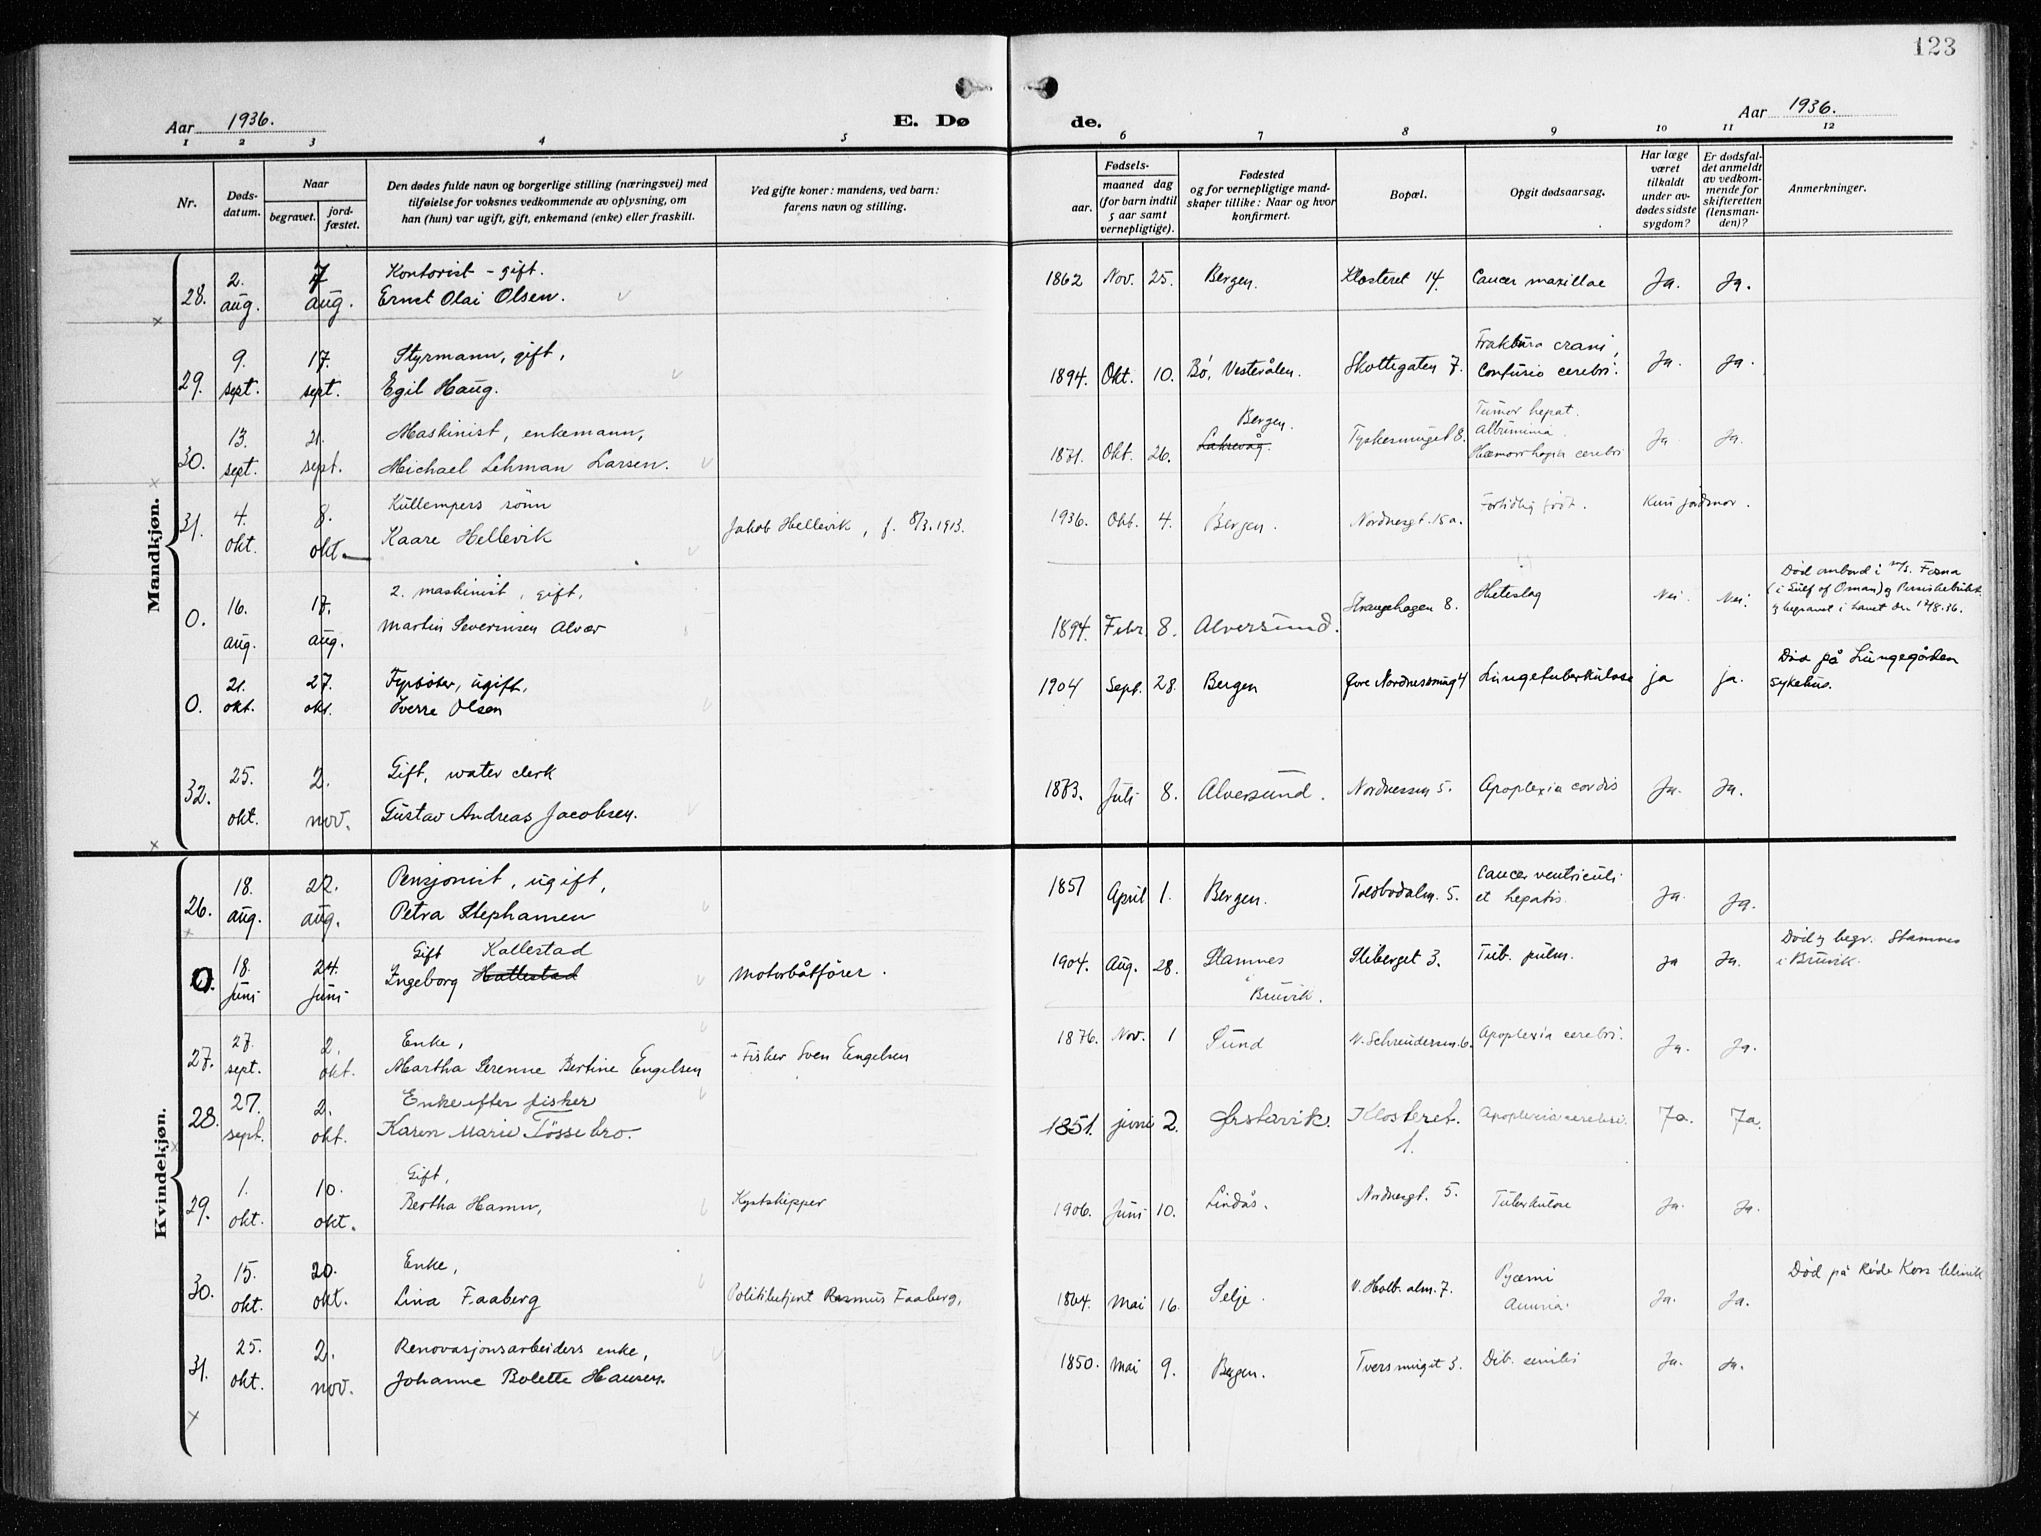 123
Aar 1936.
E. Dø
de.
Aar 1936.
1 2 3 4 5 6 7 8 9 10 11 12
Nr.
Døds-
datum.
Naar
begravet.
jord-
fæstet.
Den dødes fulde navn og borgerlige stilling (næringsvei) med
tilføielse for voksnes vedkommende av oplysning, om
han (hun) var ugift, gift, enkemand (enke) eller fraskilt.
Ved gifte koner: mandens, ved barn:
farens navn og stilling.
Fødsels-
aar.
maaned dag
(for barn indtil
5 aar samt
vernepligtige).
Fødested
og for vernepligtige mand-
skaper tillike: Naar og hvor
konfirmert.
Bopæl.
Opgit dødsaarsag.
Har læge
været
tilkaldt
under av-
dødes sidste
sygdom?
Er dødsfal-
det anmeldt
av vedkom-
mende for
skifteretten
(lensman-
den)?
Anmerkninger.
Mandkjøn.
28. 2. aug. 7 aug. Kontorist - gift.
Ernst Olai Olsen.
1862 Nov. 25. Bergen. Klosteret 14. Cancer maxillae Ja. Ja.
29. 9. sept. 17. sept. Styrmann, gift,
Egil Haug.
1894. Okt. 10. Bø, Vesterålen. Skottegaten 7. Fraktura crani,
Confusio cerebri. Ja. Ja.
30. 13. sept. 21. sept. Maskinist, enkemann,
Michael Lehman Larsen.
1871. Okt. 26. Bergen.
Laksevåg. Tyskesmuget 8. Tumor hepat.
Albuminia.
Hæmorrhagia cerebri Ja. Ja.
31. 4. okt. 8. okt. Kullempers sønn
Kaare Hellevik
Jakob Hellevik, f. 8/3.1913.
1936. Okt. 4. Bergen. Nordnesgt. 15a. Fortidlig født. Kun jordmor.
0. 16. aug. 17. aug. 2. maskinist, gift,
Martin Severinsen Alvær
1894. Febr. 8. Alversund. Strangehagen 8. Heteslag Nei. Nei.
Død ombord i m/s. Fosna
(i Gulf of Oman) og Persiskebukt
og begravet i havet den 17/8.36.
0. 21. okt. 27. okt. Fyrbøter, ugift,
Sverre Olsen
1904 Sept. 28. Bergen Øvre Nordnessmug 4 Lungetuberkulose ja ja.
Død på Lungegården
sykehus.
32. 25. okt. 2. nov. Gift, water clerk
Gustav Andreas Jacobsen.
1873. Juli 8. Alversund. Nordnessen 5. Apoplexia cordis Ja. Ja.
Kvindekjøn.
26. 18. aug. 22. aug. Pensjonist, ugift,
Petra Stephansen
1851 April 1. Bergen. Toldbodalm. 5. Cancer ventriculi
et hepatis. Ja. Ja.
0. 18. Juni 24. Juni Gift Kallestad
Ingeborg Hallestad
Motorbåtfører.
1904. Aug. 28. Stamnes
i Bruvik. Stiberget 3. Tub. pulm. ja Ja.
Død og begr. Stamnes
i Bruvik.
27. 27. sept. 2. okt. Enke,
Martha Serenne Bertine Engelsen
- Fisker Sven Engelsen
1876. Nov. 1 Sund V. Schreudersm. 6. Apoplexia cerebri. Ja. Ja.
28. 27. sept. 2. okt. Enke efter fisker
Karen Marie Tøssebro.
1851. juni 2. Ørstavik. Klosteret.
1. Apoplexia cerebri. Ja. Ja.
29. 1. okt. 10. okt. Gift,
Bertha Hamn,
Kystskipper
1906. Juni 10. Lindås. Nordnesgt. 5. Tuberkulose Ja. Ja.
30. 15. okt. 20. okt. Enke,
Lina Faaberg
Politibetjent Rasmus Faaberg.
1864. Mai 16. Selje. V. Holb. alm. 7. Pyæmi
Ja. Ja.
Død på Røde Kors klinik
31. 25. okt. 2. nov. Renovasjonsarbeiders enke,
Johanne Bolette Hansen.
1850. Mai 9. Bergen. Tversmuget 3. Deb. senilis Ja. Ja.